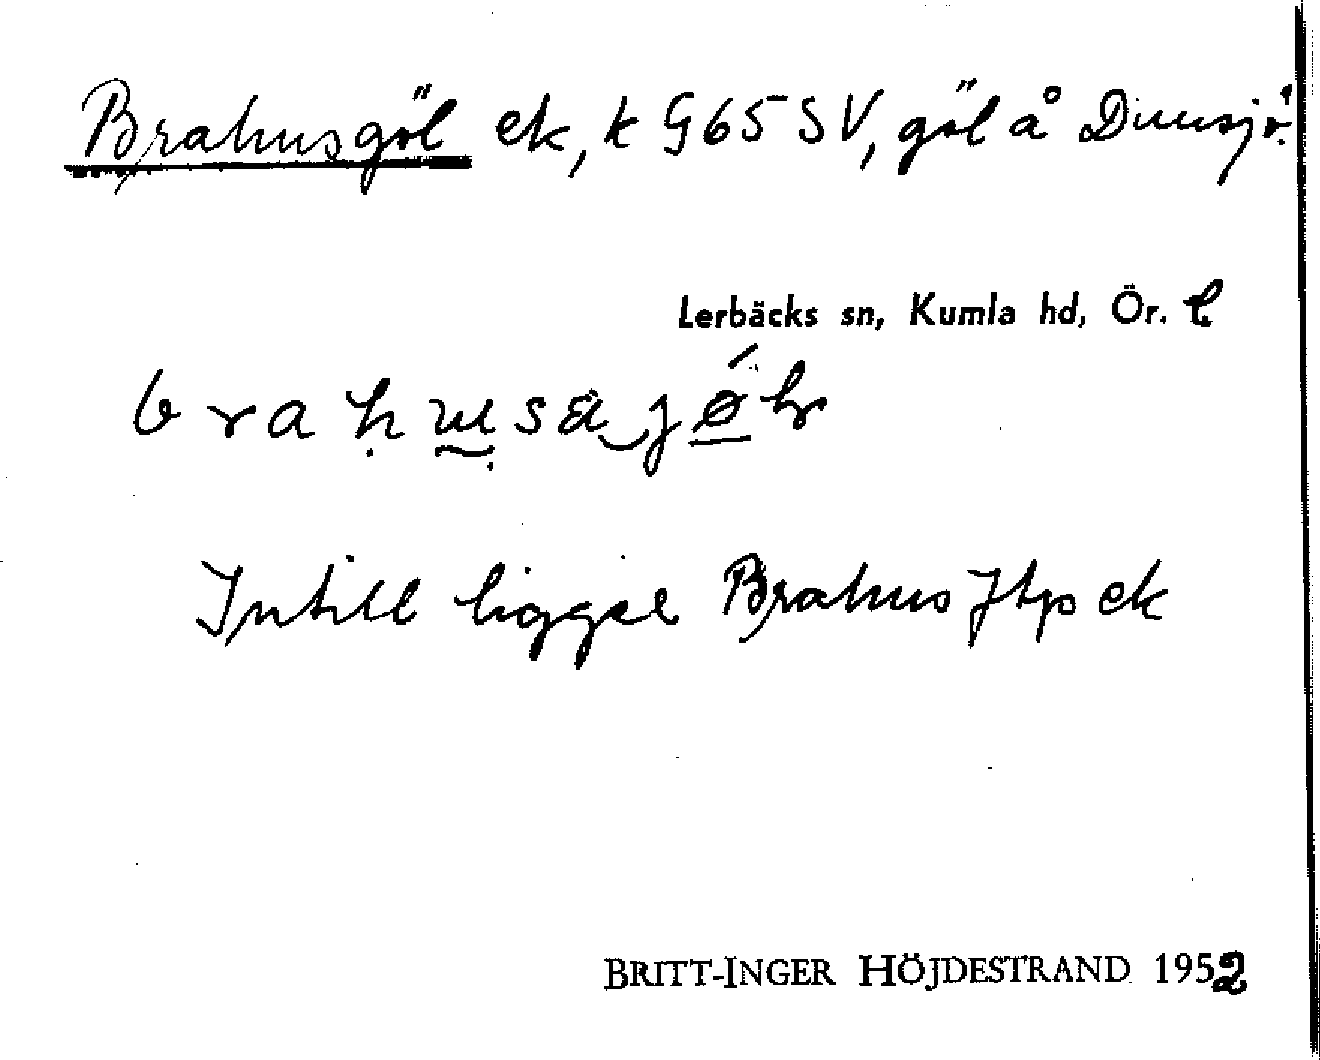 Brahusgöl ek, k G65 SV, göl å Dunsjö.
Lerbäcks sn, Kumla hd, Ör. l
Intill ligger Brahus Jtp ek
BRITT-INGER HÖJDESTRAND 1952